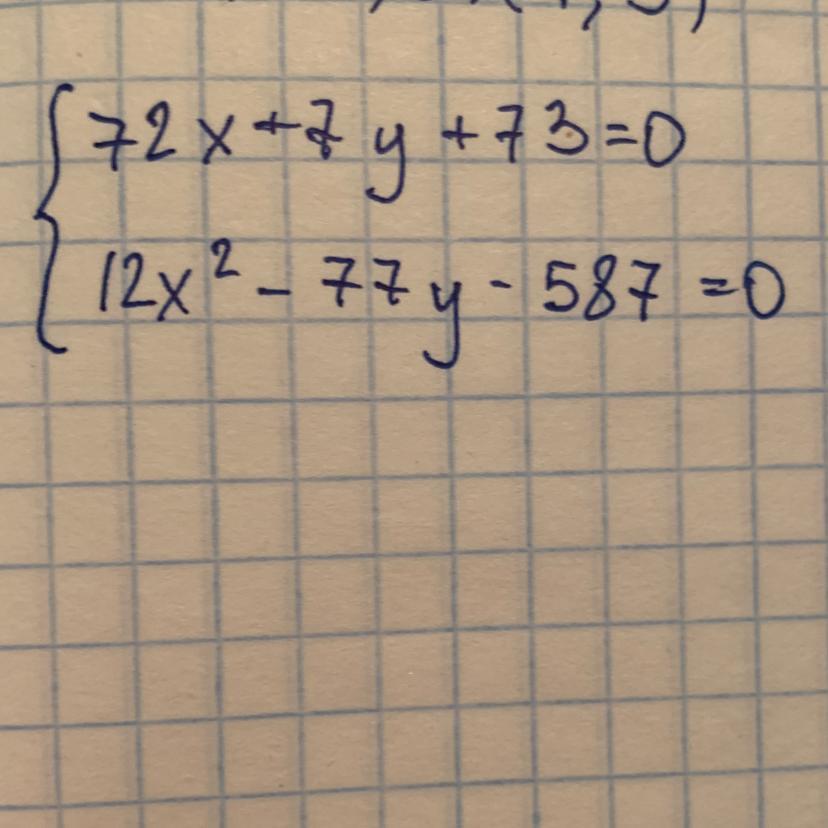 72x+7y+73=0
12x²-77y-587=0